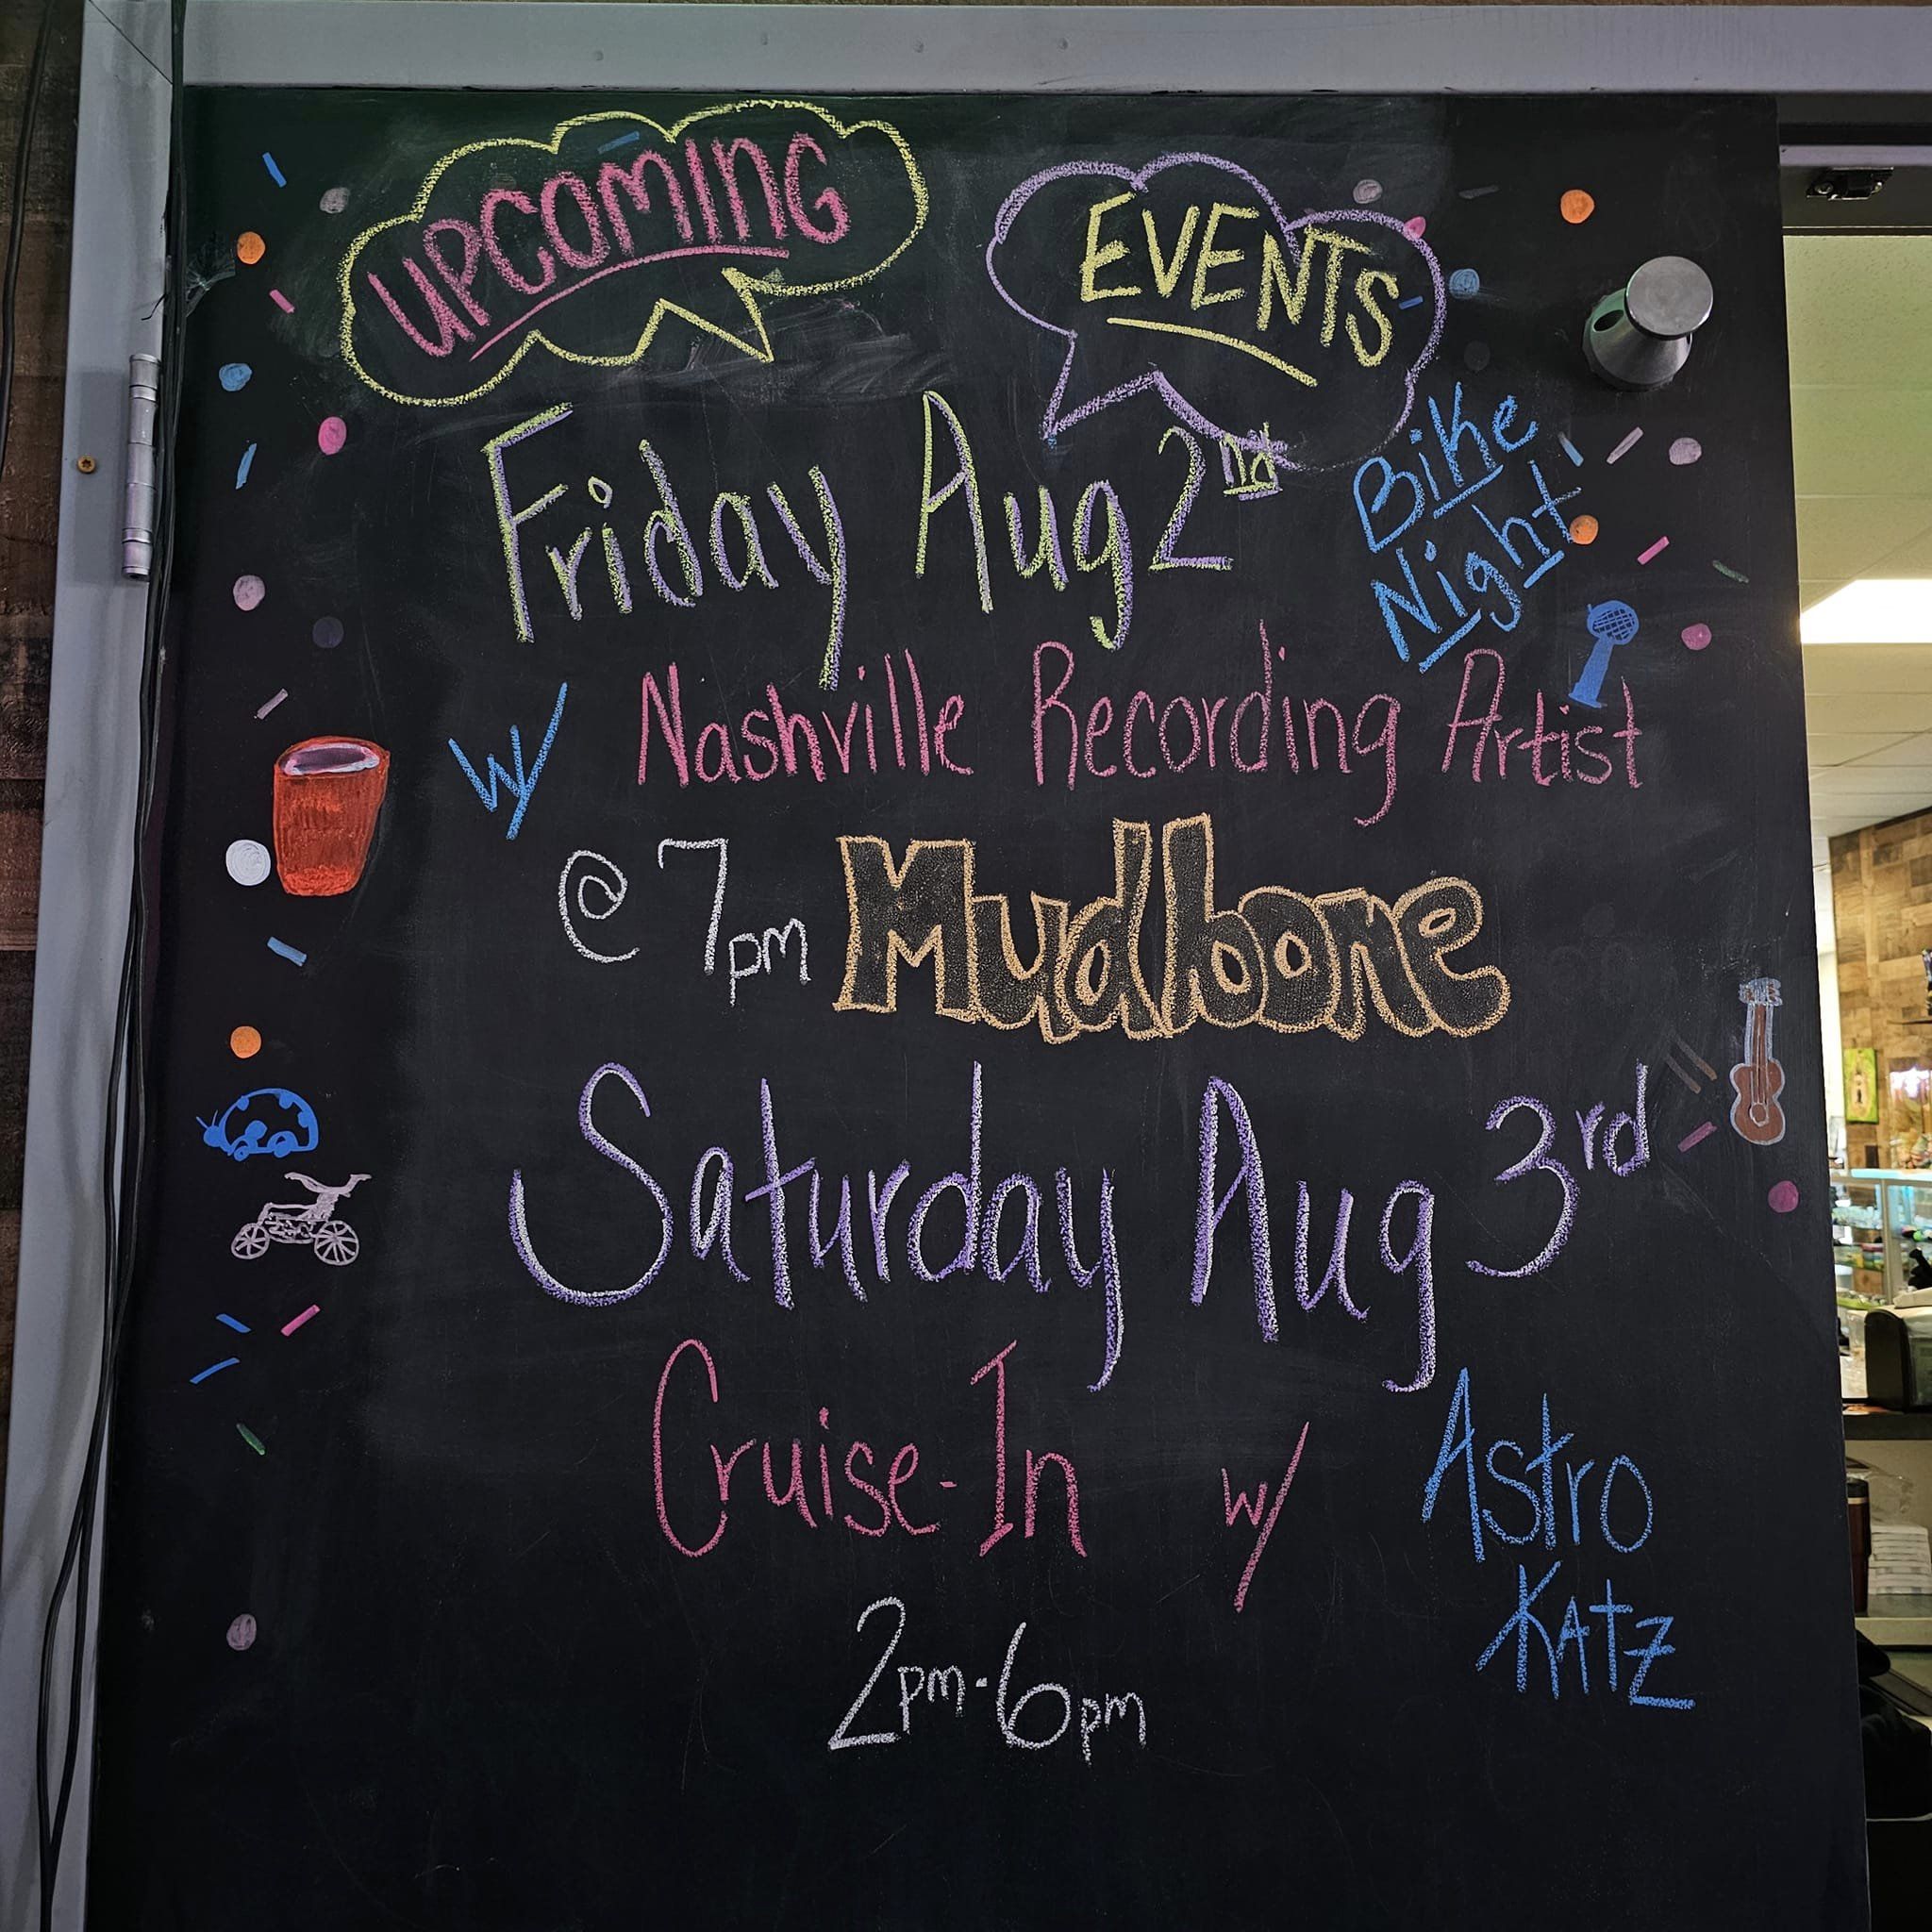 UPCOMING EVENTS
Friday Aug 2nd
Bike
Night
w/ Nashville Recording Artist
@ 7pm Mudbone
Saturday Aug 3rd
Cruise-In w/ Astro
KAtz
2pm-6pm